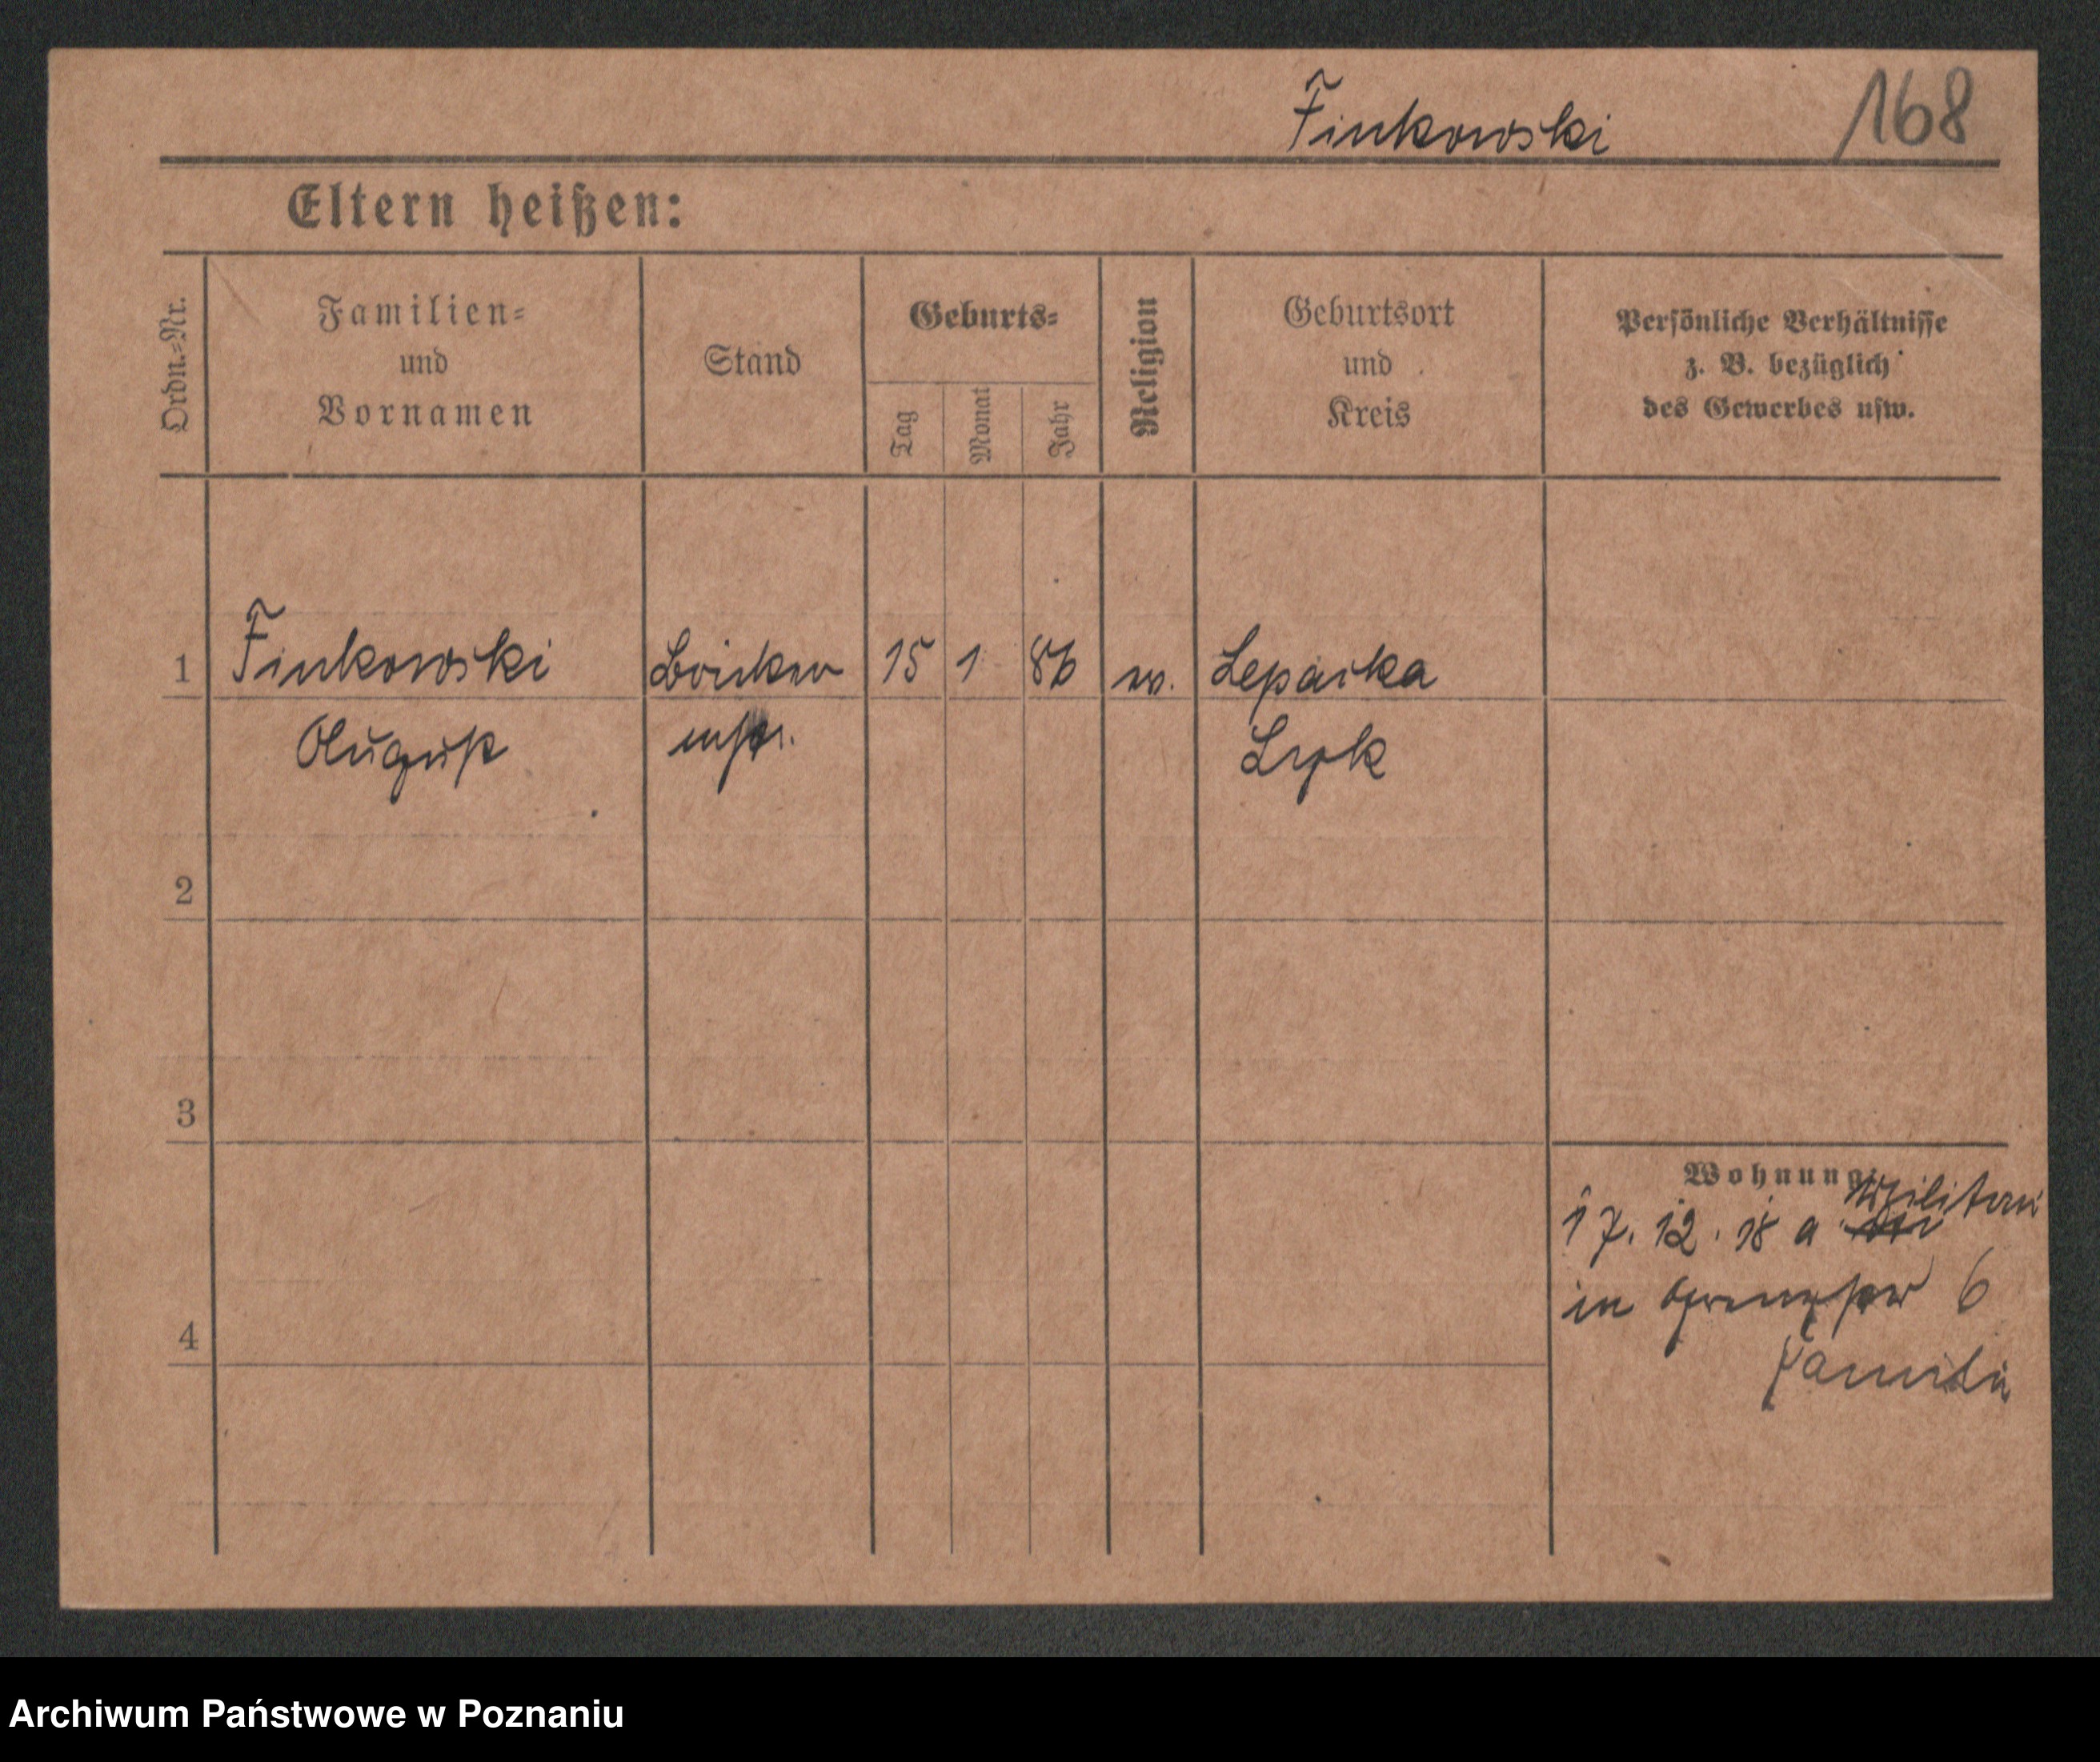 Finkowski 168
Eltern heißen:
Ordn.=Nr.
Familien=
und
Vornamen
Stand
Geburts=
Tag
Monat
Jahr
Religion
Geburtsort
und
Kreis
Persönliche Verhältnisse
z. B. bezüglich
des Gewerbes usw.
1 Finkowski 15 1 86 ev.
August Lyk
2
3
Wohnung
Militär
17. 12. 18 a
in 6
4